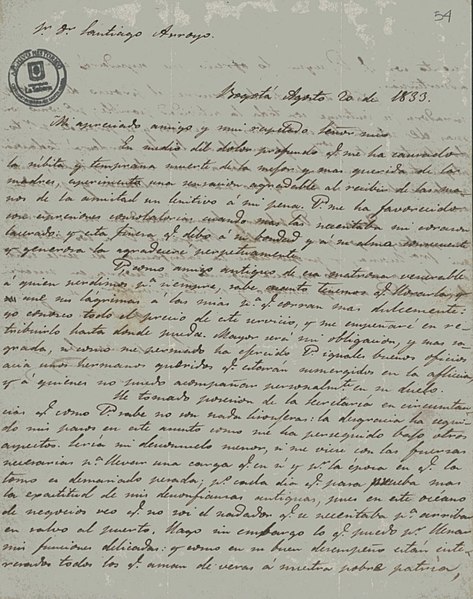 54
Sr. Dr. Santiago Arroyo.
ARCHIVO HISTORICO
Bogotá Agosto 20 de 1833.
Mi apreciado amigo y muy respetado Señor mio
En medio del dolor profundo q.e me ha causado
la subita y temprana muerte de la mejor y mas querida de las
madres, esperimento una sensacion agradable al recibir de las ma-
nos de la amistad un lenitivo á mi pena. V. me ha favorecido
con espresiones consolatorias cuando mas las necesitaba mi corazon
lacerado; y esta fineza q.e debo á su bondad y á su alma
y generosa la agradeceré perpetuamente.
V., como amigo antiguo de esa matrona venerable
á quien perdimos p.a siempre, sabe cuanto tenemos q.e llorarla, y
une sus lagrimas á las mias p.a q.e corran mas dulcemente:
yo conozco todo el precio de este servicio, y me empeñaré en re-
tribuirlo hasta donde pueda. Mayor será mi obligacion, y mas sa-
grada, si como me persuado ha ejercido V. iguales buenos oficios
acia unos hermanos queridos q.e estarán sumergidos en la afliccion
y á quienes no puedo acompañar personalm.te en su duelo.
He tomado posesion de la Secretaría en circunstan-
cias q.e como V. sabe no son nada lisonjeras: la desgracia ha segui-
do mis pasos en este asunto como me ha perseguido bajo otros
aspectos. Seria mi desconsuelo menor, si me viese con las fuerzas
necesarias p.a llevar una carga q.e en sí y p.r la epoca en q.e la
tomo es demasiado pesada; p.o cada dia q.e pasa prueba mas
la exactitud de mis desconfianzas antiguas, pues en este oceano
de negocios veo q.e no soi el nadador q.e se necesitaba p.a arribar
en salvo al puerto. Hago sin embargo lo q.e puedo p.r llenar
mis funciones delicadas: y como en su buen desempeño están inte-
resados todos los q.e aman de veras á nuestra pobre patria,